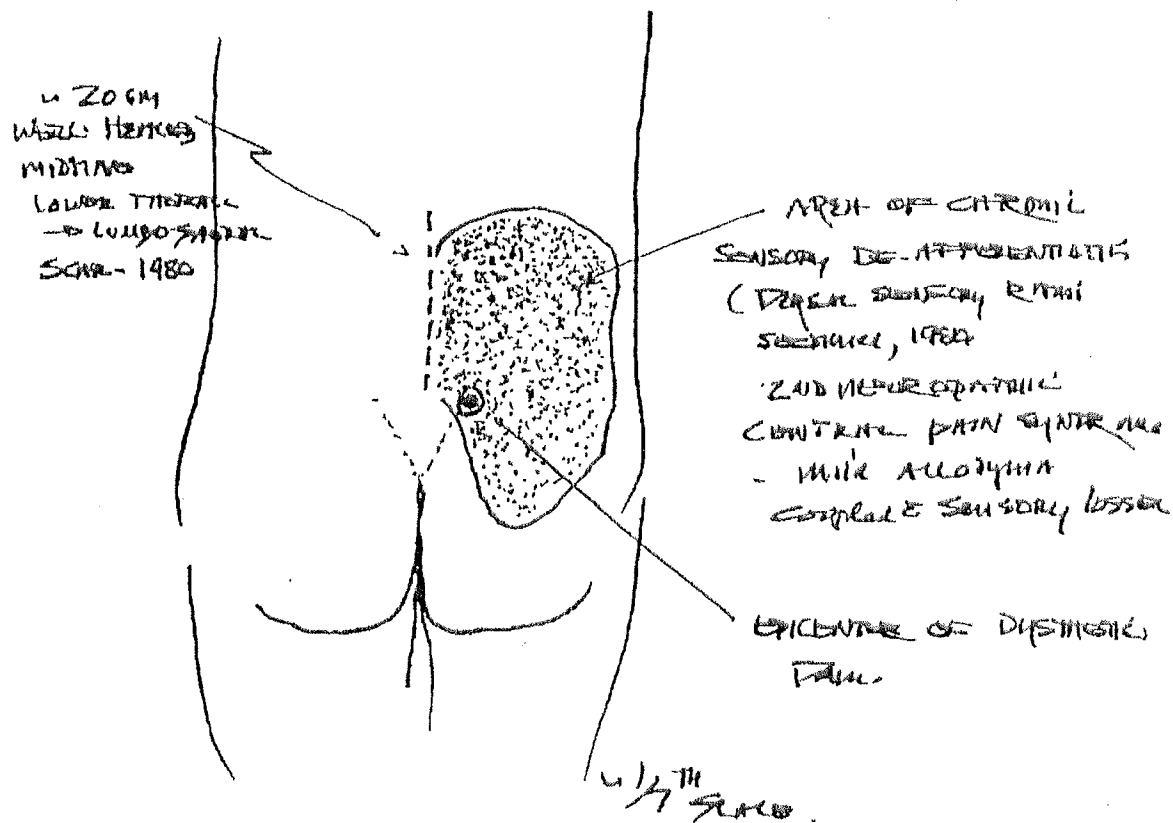 ~ 20 cm
WELL HEALED
MIDLINE
LOWER THORACIC
→ LUMBO-SACRAL
SCAR - 1980
AREA OF CHRONIC
SENSORY DE-AFFERENTATION
(DORSAL SENSORY
, 1980
2ND NEUROPATHIC
CENTRAL PAIN SYNDROME
- ALLODYNIA
COMPLETE SENSORY LOSSES
EPICENTRE OF DYSTHETIC
PAIN.
~ 1/7TH
SCALE.